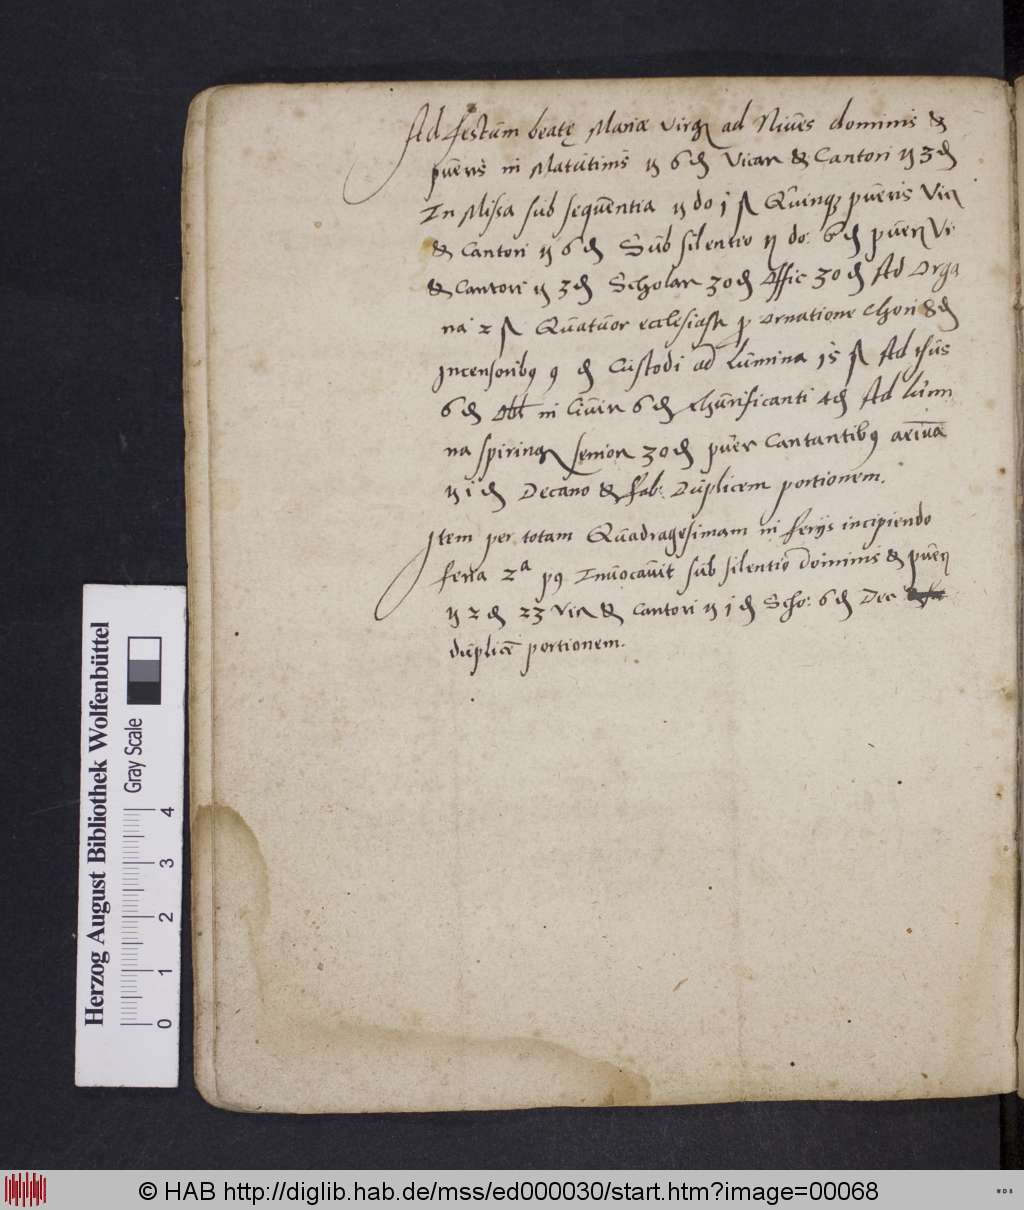 Ad festum beatę Mariæ Virg ad Niues dominis &
pueris in Matutinis ij 6 ₰ Vicar & Cantori ij 3 ₰
In Missa sub sequentia ij do j ß Quinque pueris Vic
& Cantori ij 6 ₰ Sub silentio ij do: 6 ₰ puer Vi
& Cantori ij 3 ₰ Scholar 30 ₰ Offic 30 ₰ Ad Orga
na 2 ß Quatuor ecclesiast p ornatione Chori 8 ₰
Incensoribꝯ 9 ₰ Custodi ad Lumina 15 ß Ad
6 ₰ Obl in 6 ₰ thurificanti 4 ₰ Ad Lumi
na senior 30 ₰ puer Cantantibꝯ
ij i ₰ Decano & fab: Duplicem portionem.
Item per totam Quadragesimam in ferijs incipiendo
feria 2a pꝯ Inuocauit sub silentio Dominis & puer
ij 2 ₰ 23 Vic & Cantori ij j ₰ Scho: 6 ₰ Dec
duplicē portionem.
Herzog August Bibliothek Wolfenbüttel
Gray Scale
0 1 2 3 4
© HAB http://diglib.hab.de/mss/ed000030/start.htm?image=00068